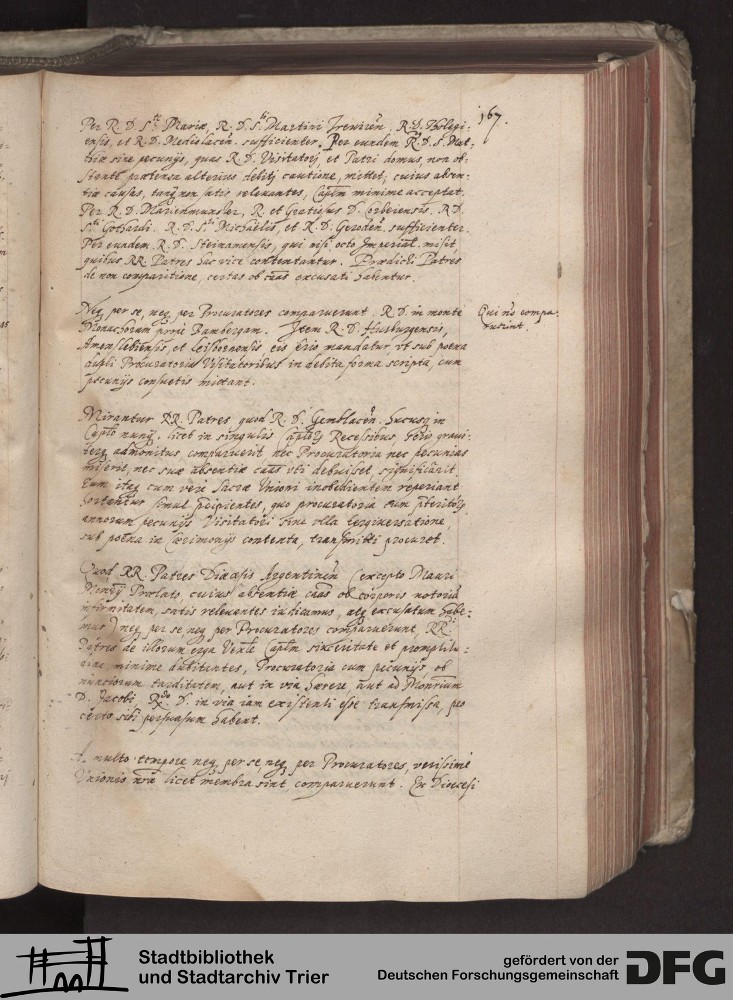 167.
Per R. D. S.tæ Mariæ, R. D. S.ti Martini Treviren̄. R. D. Tholegi-
ensis, et R. D. Mediolacen̄. sufficienter. Per eundem R. D. S. Mat-
thiæ sine pecunijs, quas R. D. Visitatori, et Patri domus, non ob-
stante prætensa alterius debiti cautione, mittet, cuius absen-
tiæ causas, tanq̃ non satis relevantes, Cap̃tm minime acceptat.
Per R. D. Marienmunster, R. et Gratiosus D. Corbeiensis. R. D.
S.ti Gothardi. R. D. S.ti Michaëlis, et R. D. Geroden̄. sufficienter.
Per eundem R. D. Steinamensis, qui nisi octo Imperial. misit
quibus RR. Patres hac vice contentantur. Prædicti Patres
de non comparitione, certas ob cãas excusati habentur.
Neq̃ per se, neq̃ per Procuratores comparuerunt. R. D. in monte
Monachorum propè Bambergam. Item R. D. Husburgensis,
Amenslebiensis, et
eis serio mandatur vt sub poena
dupli Procuratoria Visitatoribus in debita forma scripta, cum
pecunijs consuetis mittant.
Qui nõ compa-
ruerint.
Mirantur RR. Patres quod R. D. Gemblacen̄. hucusq̃ in
Cap̃lo nunq̃, licet in singulis Cap̃lorũ Recessibus, serio gravi-
terq̃ admonitus, comparuerit nec Procuratoria nec pecunias
miserit, nec suæ absentiæ cãas vti debuisset, significârit.
Eum itaq̃ cum verè Sacræ Unioni inobedientem reperiant
hortantur simul p̃cipientes, quo procuratoria cum p̃teritorũ
annorum pecunijs Visitatori sine vlla tergiversatione,
sub poena in Cærimonijs contenta, transmitti procuret.
Quod RR. Patres Diœcesis Argentinen̄ (excepto Mauri
Monr̃ij Prælato, cuius absentiæ cãas ob corporis notoriã
infirmitatem, satis relevantes iudicamus, atq̃ excusatum habe-
mus) neq̃ per se, neq̃ per Procuratores comparuerunt, RR.
Patres de illorum erga Ven.le Cap̃tm sinceritate et promptitu-
dine minime dubitantes, Procuratoria cum pecunijs ob
nunciorum tarditatem, aut in via hærere, aut ad Mon̄rium
D. Jacobi, R.do D. in via iam existenti esse transmissa, pro
certo sibi persuasum habent.
A multo tempore neq̃ per se, neq̃ per Procuratores, verissimè
Unionis nr̃æ licet membra sint, comparuerunt. Ex Diœcesi
Stadtbibliothek
und Stadtarchiv Trier
gefördert von der
Deutschen Forschungsgemeinschaft
DFG